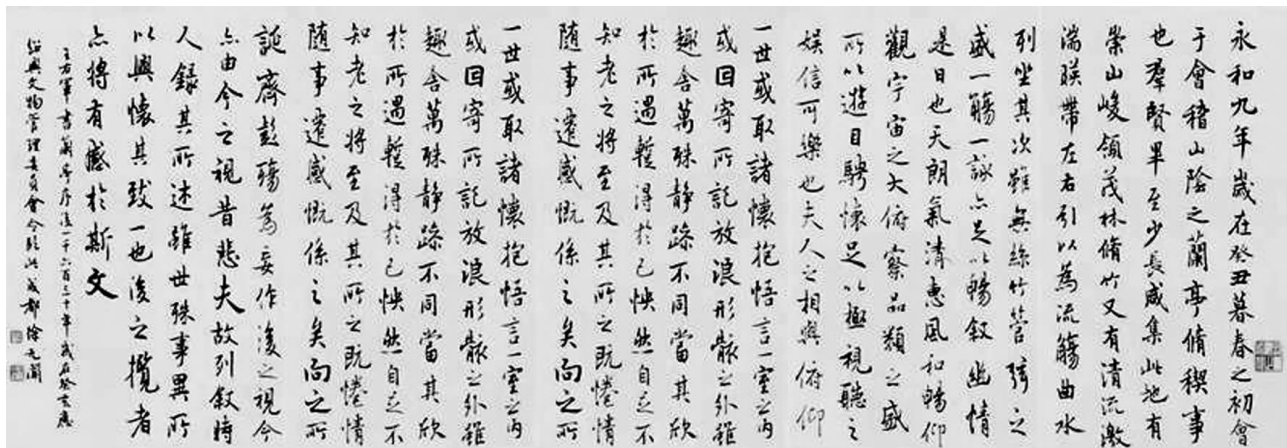 永和九年歲在癸丑暮春之初會
于會稽山陰之蘭亭脩稧事
也羣賢畢至少長咸集此地有
崇山峻領茂林脩竹又有清流激
湍暎帶左右引以為流觴曲水
列坐其次雖無絲竹管弦之
盛一觴一詠亦足以暢敘幽情
是日也天朗氣清惠風和暢仰
觀宇宙之大俯察品類之盛
所以遊目騁懷足以極視聽之
娛信可樂也夫人之相與俯仰
一世或取諸懷抱悟言一室之內
或因寄所託放浪形骸之外雖
趣舍萬殊静躁不同當其欣
於所遇蹔得於己怏然自足不
知老之將至及其所之既惓情
随事遷感慨係之矣向之所
一世或取諸懷抱悟言一室之內
或因寄所託放浪形骸之外雖
趣舍萬殊静躁不同當其欣
於所遇蹔得於己怏然自足不
知老之將至及其所之既惓情
随事遷感慨係之矣向之所
誕齊彭殤為妄作後之視今
亦由今之視昔悲夫故列敘時
人錄其所述雖世殊事異所
以興懷其致一也後之攬者
亦將有感於斯文
王右軍書蘭亭序後一千六百二十年歲在癸丑應
紹興文物管理委員會令臨此成都徐无聞